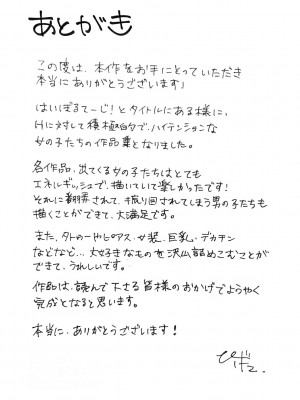 あとがき
この度は、本作をお手にとっていただき
本当にありがとうございます」
はいぼるてーじ!とタイトルにある様に、
Hに対して積極的で、ハイテンションな
女の子たちの作品集となりました。
各作品、出てくる女の子たちはとても
エネルギッシュで、描いていて楽しかったです!
それに翻弄されて、振り回されてしまう男の子たちも
描くことができて、大満足です。
また、タトゥーやピアス・女装、巨乳・デカチン
などなど...大好きなものを沢山詰めこむことが
できて、うれしいです。
作品は、読んで下さる皆様のおかげでようやく
完成となると思います。
本当に、ありがとうございます!